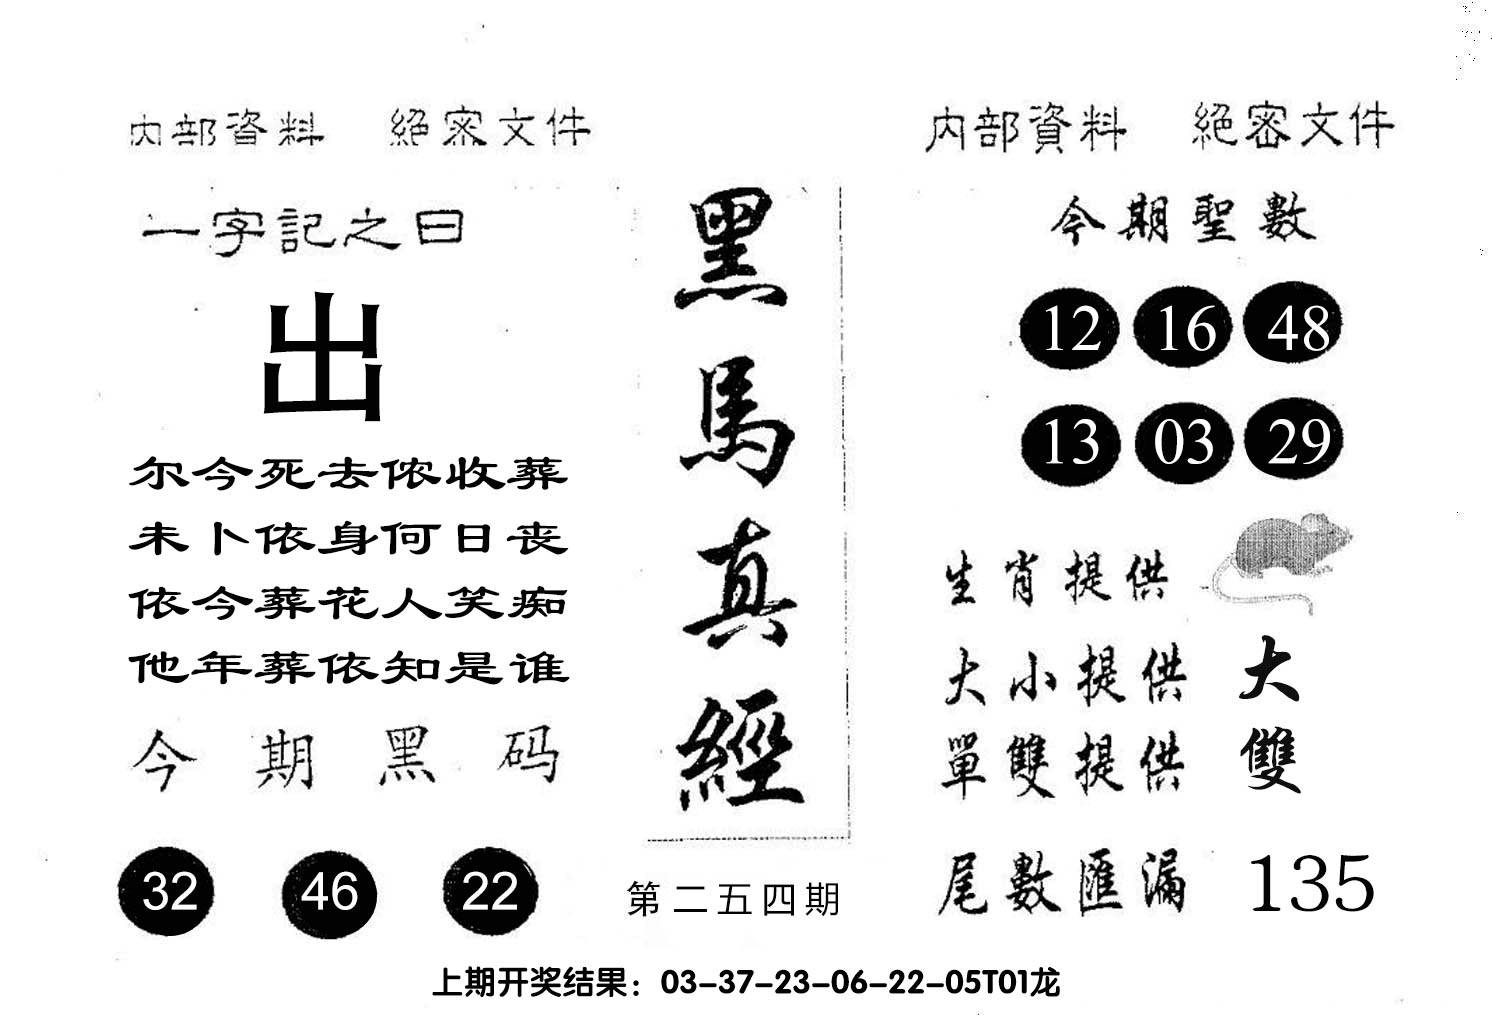 内部資料 絕密文件
一字記之曰
出
尔今死去侬收葬
未卜侬身何日丧
侬今葬花人笑痴
他年葬侬知是谁
今期黑码
32 46 22
黑馬真經
第二五四期
内部資料 絕密文件
今期聖數
12 16 48
13 03 29
生肖提供
大小提供 大
單雙提供 雙
尾數匯漏 135
上期开奖结果：03-37-23-06-22-05T01龙